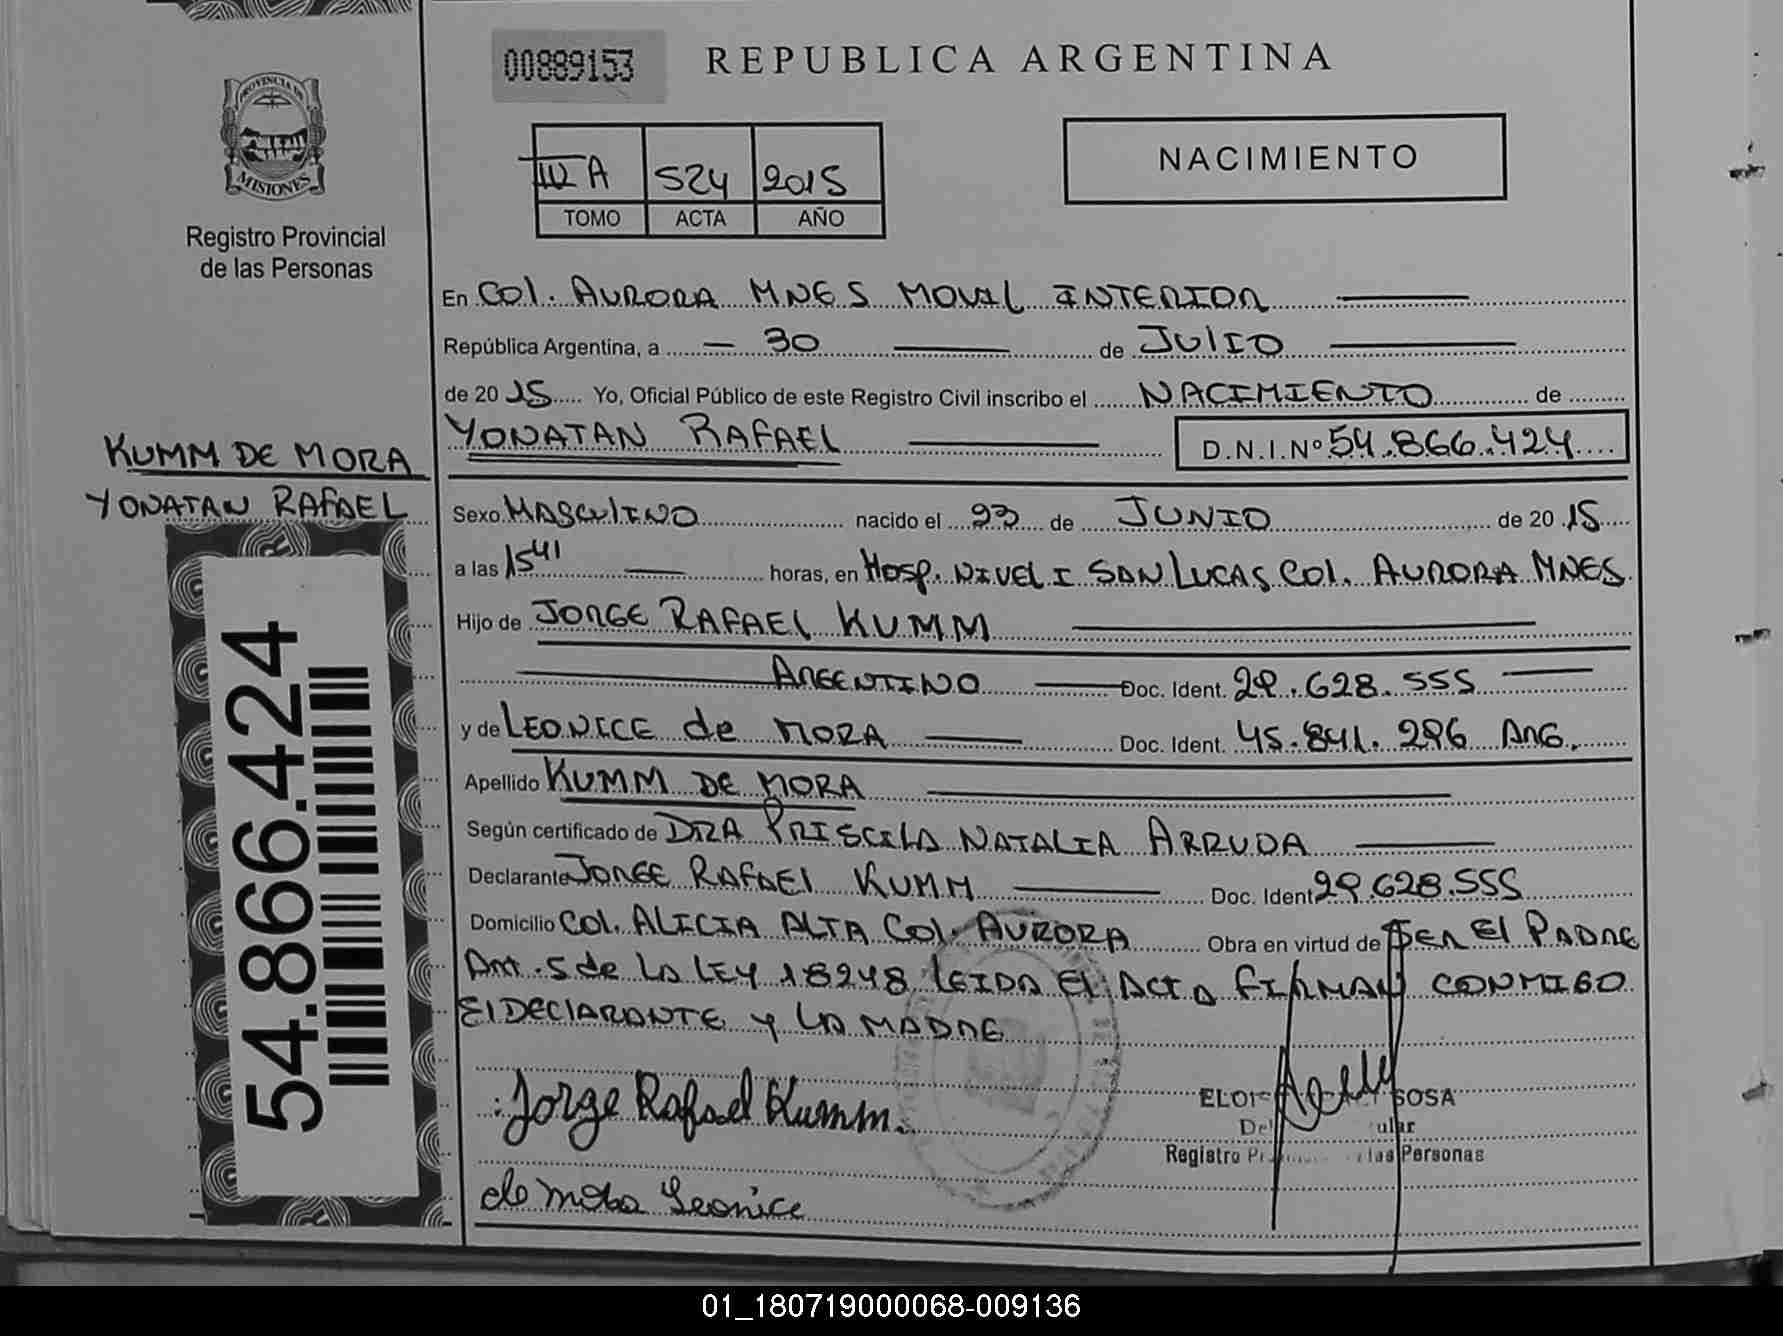 00889153 REPUBLICA ARGENTINA
PROVINCIA DE
MISIONES
Registro Provincial
de las Personas
NACIMIENTO
A 524 2015
TOMO ACTA AÑO
En Col. AURORA MNES MOVIL INTERIOR
República Argentina, a 30 de JULIO
de 2015 Yo, Oficial Público de este Registro Civil inscribo el NACIMIENTO de
YONATAN RAFAEL D.N.I.Nº 54.866.424
KUMM DE MORA
YONATAN RAFAEL
Sexo MASCULINO nacido el 23 de JUNIO de 2015
a las 15 41 horas, en Hosp. NIVEL I SAN LUCAS Col. AURORA MNES
Hijo de JORGE RAFAEL KUMM
ARGENTINO Doc. Ident. 29.628.555
y de LEONICE de MORA Doc. Ident. 45.841.296 ARG.
Apellido KUMM DE MORA
Según certificado de DRA PRISCILA NATALIA ARRUDA
Declarante JORGE RAFAEL KUMM Doc. Ident 29.628.555
Domicilio Col. ALICIA ALTA Col. AURORA Obra en virtud de SER El PADRE
Art. 5 de LA LEY 18248 LEIDA EL ACTA FIRMAN CONMIGO
El DECLARANTE y LA MADRE
Jorge Rafael Kumm.
SOSA
Registro las Personas
de mora Leonice
54.866.424
01_180719000068-009136